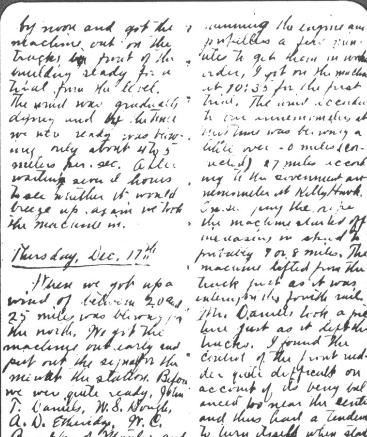 by noon and got the
machine out on the
tracks in front of the
building ready for a
trial from the level.
The wind was gradually
dying and by the time
we were ready was blow-
ing only about 4 to 5
meters per sec. After
waiting several hours
to see whether it would
breeze up again we took
the machine in.
Thursday, Dec. 17th
When we got up a
wind of between 20 and
25 miles was blowing from
the north. We got the
machine out early and
put out the signal for the
men at the station. Before
we were quite ready, John
T. Daniels, W. S. Dough,
A. D. Etheridge, W. C.
running the engine and
propellers a few min-
utes to get them in working
order, I got on the machine
at 10:35 for the first
trial. The wind according
to our anemometer at
this time was blowing a
little over 20 miles (cor-
rected) 27 miles accord-
ing to the Government ane-
mometer at Kitty Hawk.
On slipping the rope
the machine started off
increasing in speed to
probably 7 or 8 miles. The
machine lifted from the
truck just as it was
entering on the fourth rail.
Mr. Daniels took a pic-
ture just as it left the
tracks. I found the
control of the front rud-
der quite difficult on
account of its being bal-
anced too near the center
and thus had a tendency
to turn itself when started